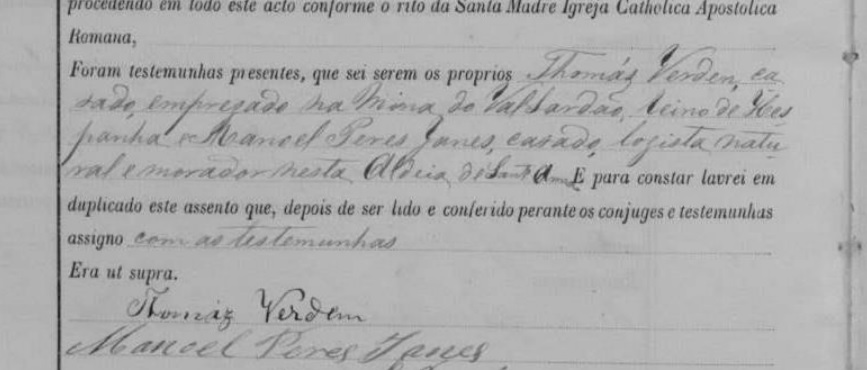 procedendo em todo este acto conforme o rito da Santa Madre Igreja Catholica Apostolica
Romana,
Foram testemunhas presentes, que sei serem os proprios Thomáz Verden, ca
sado, empregado na Mina do Valtardão, reino de Hes
panha e Manoel Peres Janes, casado, logista natu
ral e morador nesta Aldeia de Sant'Anna E para constar lavrei em
duplicado este assento que, depois de ser lido e conferido perante os conjuges e testemunhas
assigno com as testemunhas
Era ut supra.
Thomáz Verdem
Manoel Peres Janes